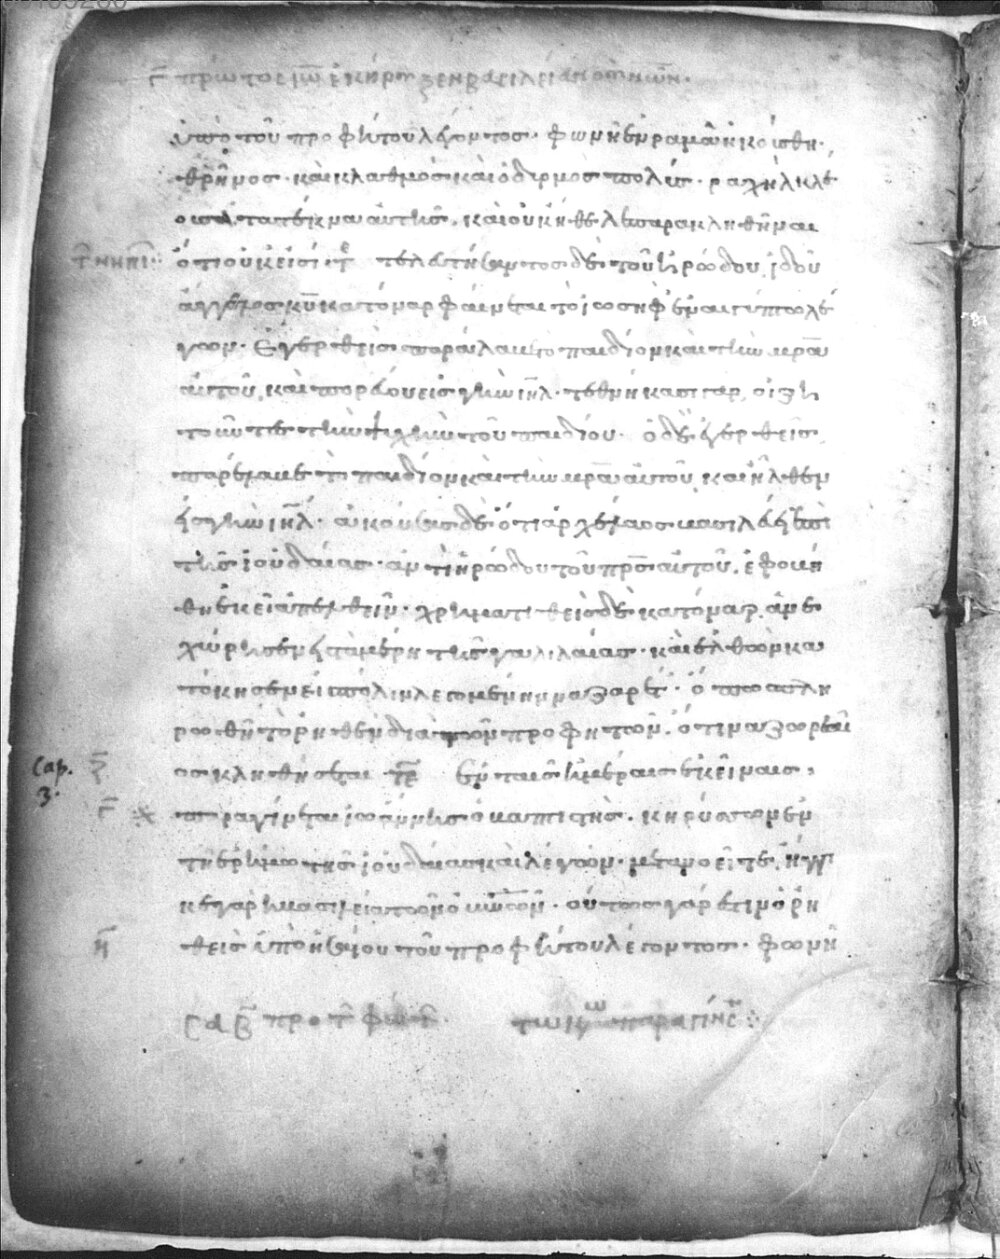 Γ πρῶτος ἰω ἐκήρυξεν βασιλείαν οὐνῶν.
ὑπὸ τοῦ προφήτου λέγοντος· φωνὴ ἐν ραμᾶ ἠκούσθη·
θρῆνος· καὶ κλαθμὸς καὶ ὀδυρμὸς πολύς· ραχὴλ κλέ
ουσα τα τέκνα αὐτῆς· καὶ οὐκ ἤθελε παρακληθῆναι
ὅτι οὐκ εἰσίν τελευτήσαντος δὲ τοῦ ἡρώδου, ἰδοῦ
ἄγγελος κυ κατόναρ φαίνεται τὸ ἰωσηφ ἐν αιγύπτω λέ
γων· Ἐγερθεὶς παράλαβε το παιδίον καὶ τὴν μρα
αὐτοῦ, καὶ πορεύου εἰς γῆν ιηλ· τεθνήκασι γαρ, οἱ ζη
τοῦντες τὴν ψυχὴν τοῦ παιδίου· ὁ δὲ ἐγερθεὶς
παρέλαβε τὸ παιδίον καὶ τὴν μρα αὐτοῦ, καὶ ἦλθεν
εἰς γῆν ιηλ· ἀκούσας δὲ ὅτι ἀρχέλαος βασιλέυει ἐπὶ
τῆς ἰουδαίας· ἀντὶ ἡρώδου τοῦ πρς αὐτοῦ, ἐφοβή
θη ἐκεῖ ἀπελθεῖν· χρηματισθεὶς δὲ κατόναρ, ἀνε
χώρησεν εἰς τὰ μέρη τῆς γαλιλαίας· καὶ ἐλθὼν κα
τόκησεν εἰ πόλιν λεγομένην ναζαρέτ· ὅπως πλη
ρωθῆ τὸ ρηθὲν διὰ τῶν προφητῶν· ὅτι ναζωραῖ
ος κληθήσεται Ἐν ταῖς ἡμέραις ἐκείναις,
Cap.
3.
Ζ
Γ
παραγίνεται ἰωάννης ὁ βαπτιστὴς· κηρύσσων ἐν
τῆ ἐρήμω τῆς ἰουδαίας καὶ λέγων· μετανοεῖτε, ἤγγι
κε γαρ ἡ βασιλεία τῶν οὐνῶν· οὗτος γάρ ἐστιν ὁ ρη
Η
θεὶς ὑπὸ ἡσαίου τοῦ προφήτου λέγοντος· φωνὴ